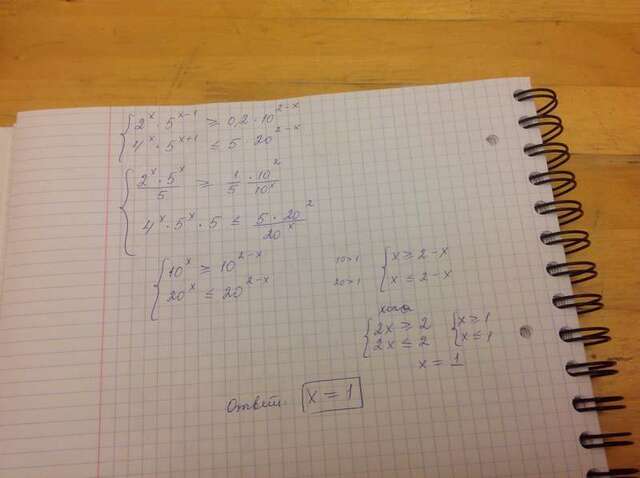 2^x · 5^(x-1) ≥ 0,2 · 10^(2-x)
4^x · 5^(x+1) ≤ 5 20^(2-x)
2^x · 5^x / 5 ≥ 1/5 · 10^2 / 10^x
4^x · 5^x · 5 ≤ 5 · 20^2 / 20^x
10^x ≥ 10^(2-x) 10>1 x ≥ 2-x
20^x ≤ 20^(2-x) 20>1 x ≤ 2-x
2x ≥ 2 x ≥ 1
2x ≤ 2 x ≤ 1
x = 1
Ответ: x = 1